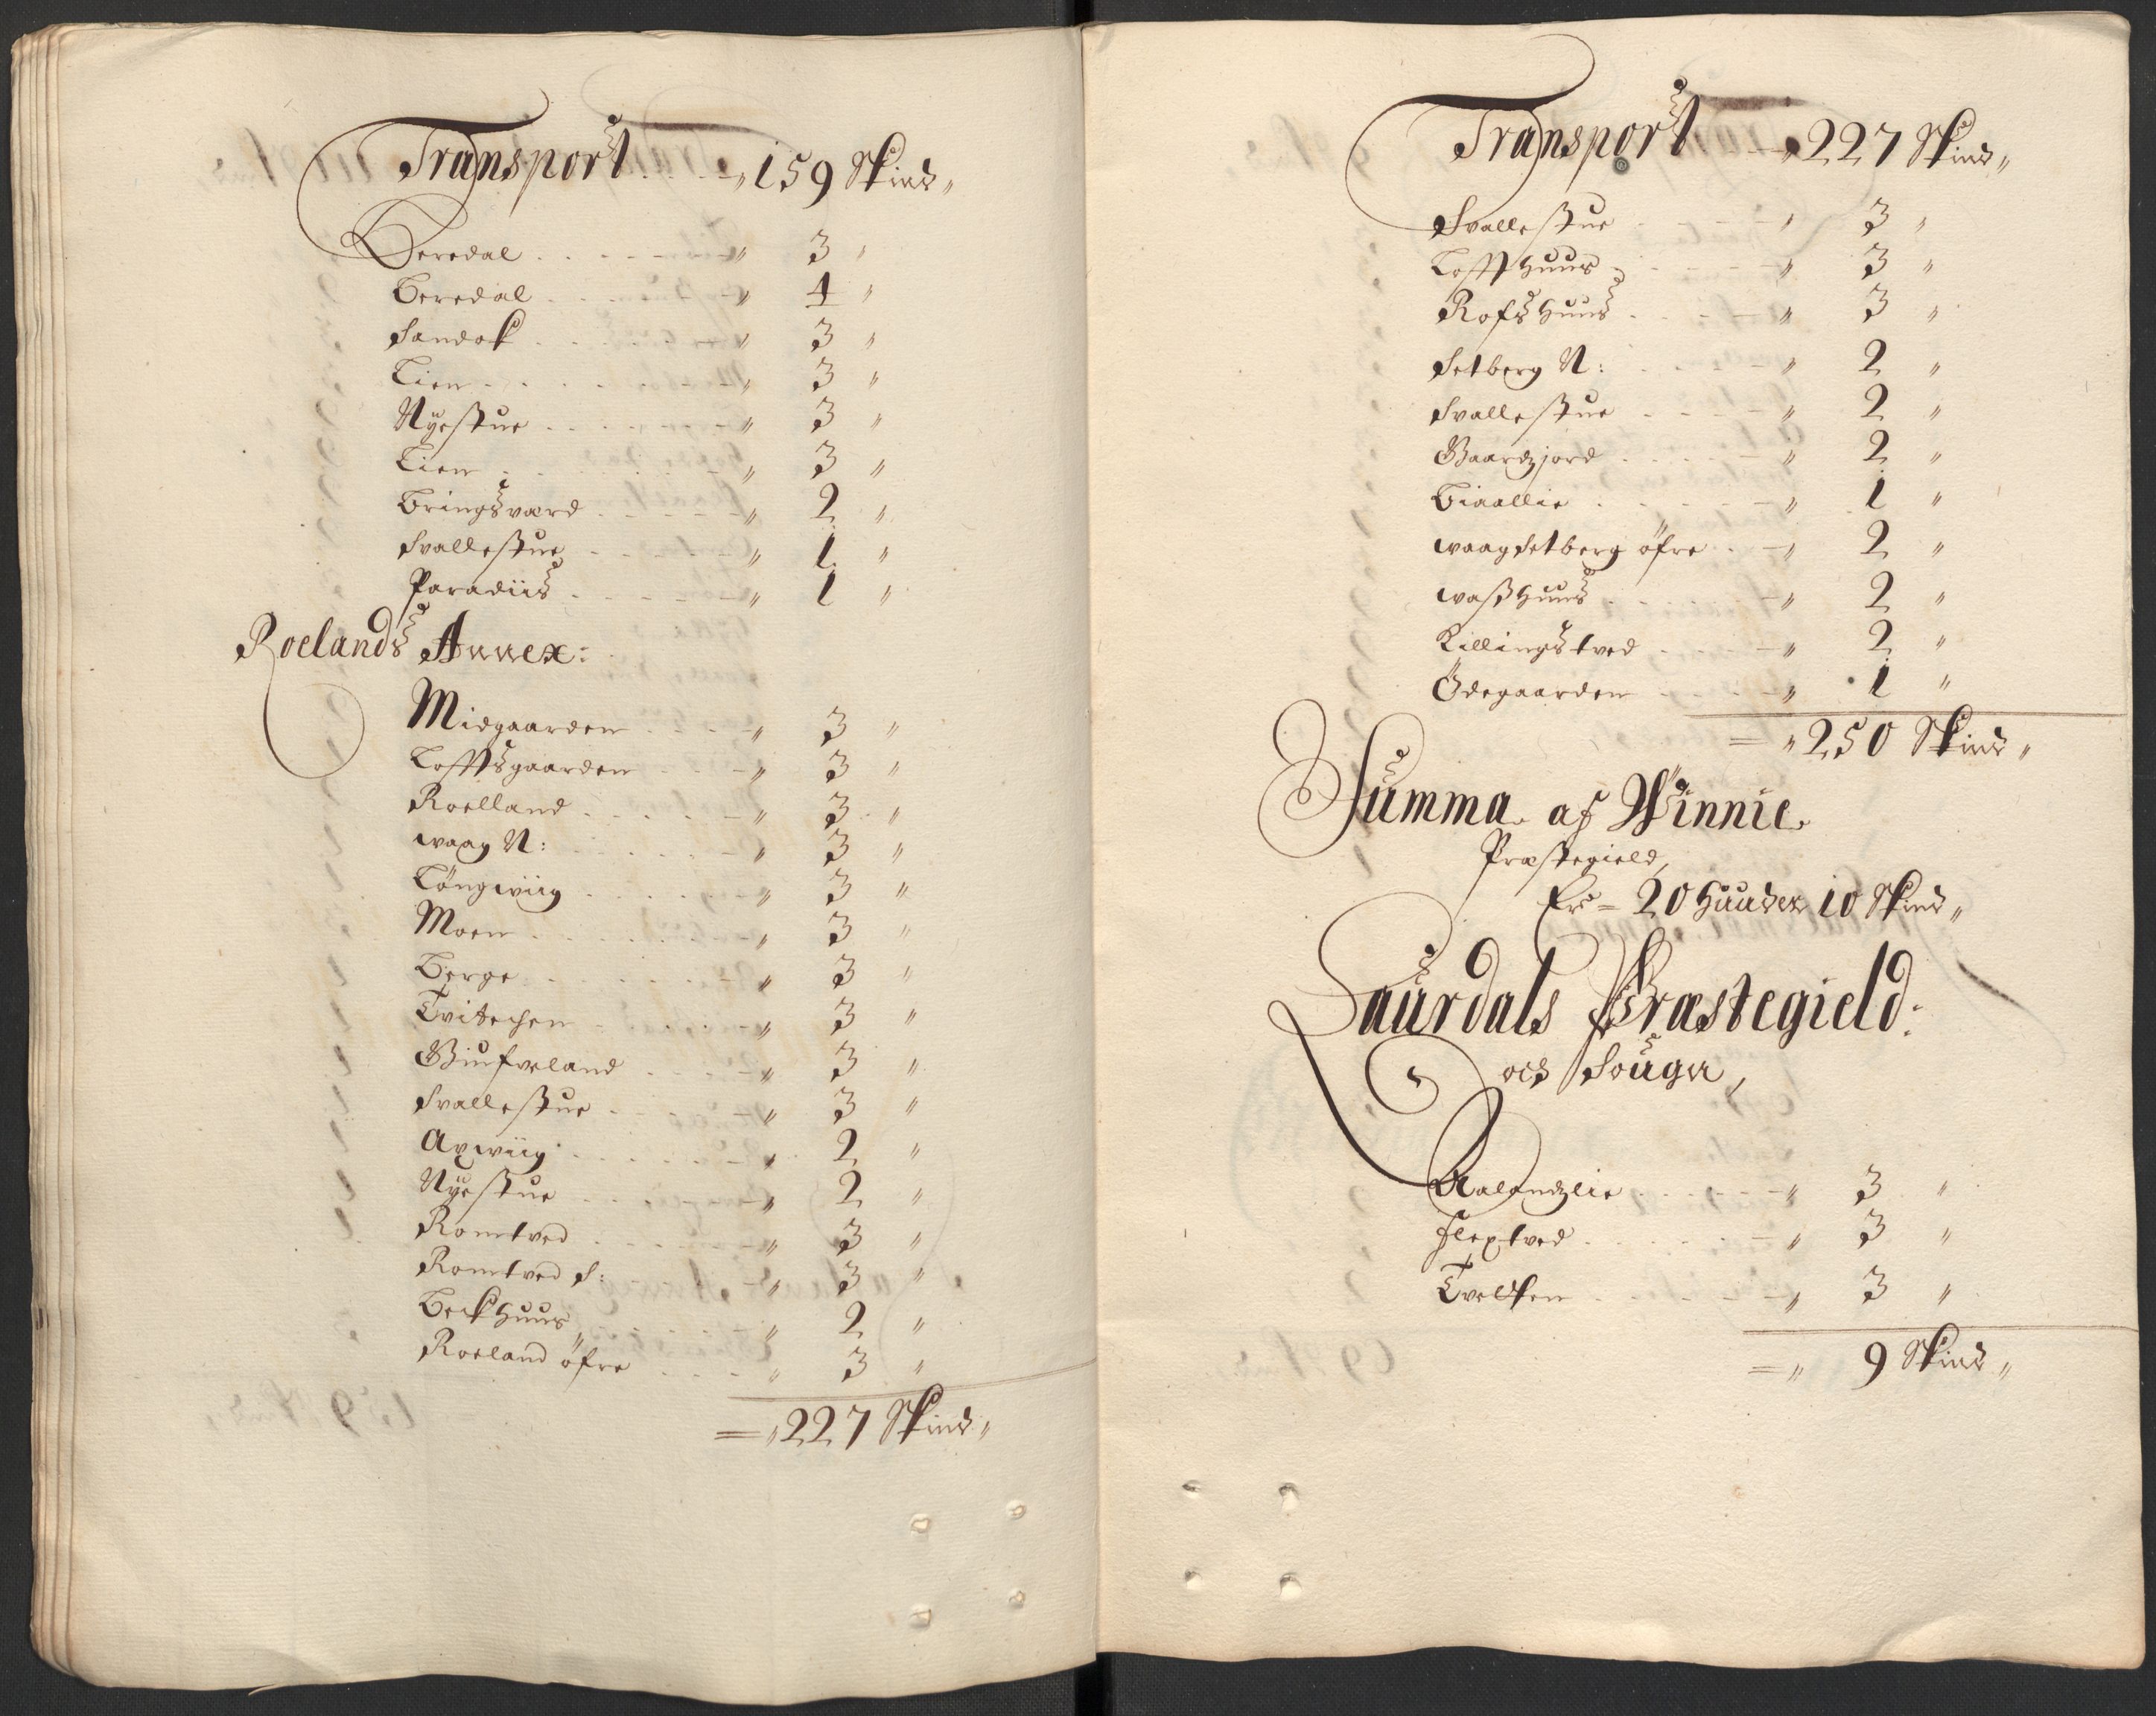 Transport - - - „ 159 Skind „
Beredal . . . . . „ 3 „
Beredal . . . . . „ 4 „
Sandok . . . . . „ 3 „
Lien . . . . . „ 3 „
Nyestue . . . . . „ 3 „
Lien . . . . . „ 3 „
Bringsværd . . . . . „ 2 „
Svallestue . . . . . „ 1 „
Paradiis . . . . . „ 1 „
Roelands Annex:
Midgaarden . . . . „ 3 „
Lofftsgaarden . . . „ 3 „
Roelland . . . . . „ 3 „
waag N: . . . . „ 3 „
Löngwiig . . . . . „ 3 „
Moen . . . . . „ 3 „
Berge . . . . . „ 3 „
Tvitechen . . . . . „ 3 „
Giufveland . . . . „ 3 „
Svallestue . . . . „ 3 „
Axwiig . . . . . „ 2 „
Nyestue . . . . . „ 2 „
Romtved . . . . . „ 3 „
Romtved S: . . . „ 3 „
Beckhuus . . . . . „ 2 „
Roeland öfre . . . „ 3 „
= „ 227 Skind „
Transport - „ 227 Skind „
Svallestue . . . . „ 3 „
Loffthuus . . . . „ 3 „
Rofshuus . . . . „ 3 „
Setberg N: . . . . „ 2 „
Svallestue . . . . „ 2 „
Gaardzjord . . . . „ 2 „
Biaallie . . . . . „ 1 „
waagsetberg öfre . . „ 2 „
wasshuus . . . . . „ 2 „
Killingstved . . . . „ 2 „
Ödegaarden . . . . „ 1 „
= „ 250 Skind „
Summa af Winnie
Præstegield,
Er = 20 Huuder 10 Skind „
Laurdals Præstegield:
och Sougn,
Aalandzlie . . . . . „ 3 „
Flextved . . . . . „ 3 „
Tvelten . . . . . „ 3 „
= „ 9 Skind „